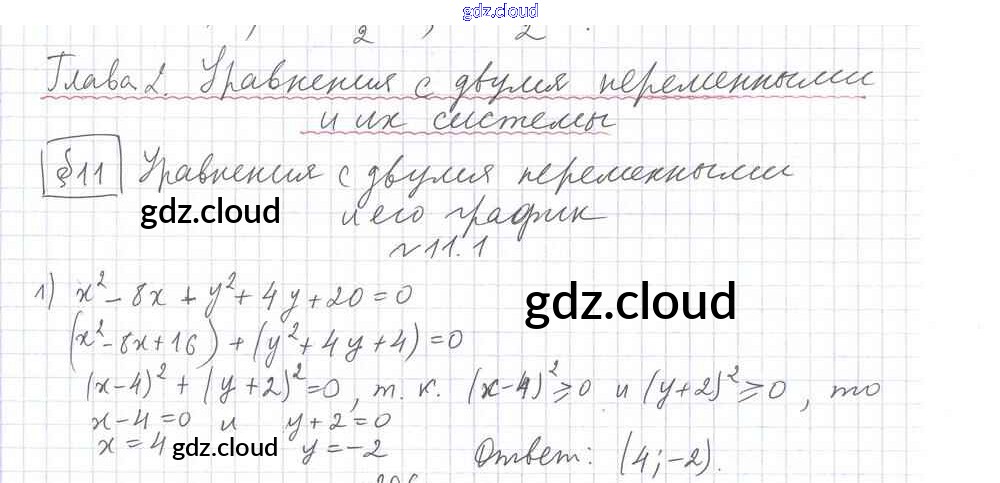 gdz.cloud
2 , 2 .
Глава 2. Уравнения с двумя переменными
и их системы
§11 Уравнения с двумя переменными
gdz.cloud и его график
N 11.1
1) x² - 8x + y² + 4y + 20 = 0
gdz.cloud
(x² - 8x + 16) + (y² + 4y + 4) = 0
(x-4)² + (y+2)² = 0, т. к. (x-4)² ≥ 0 и (y+2)² ≥ 0, то
x - 4 = 0 и y + 2 = 0
x = 4 gdz.cloud y = -2 Ответ: (4; -2).